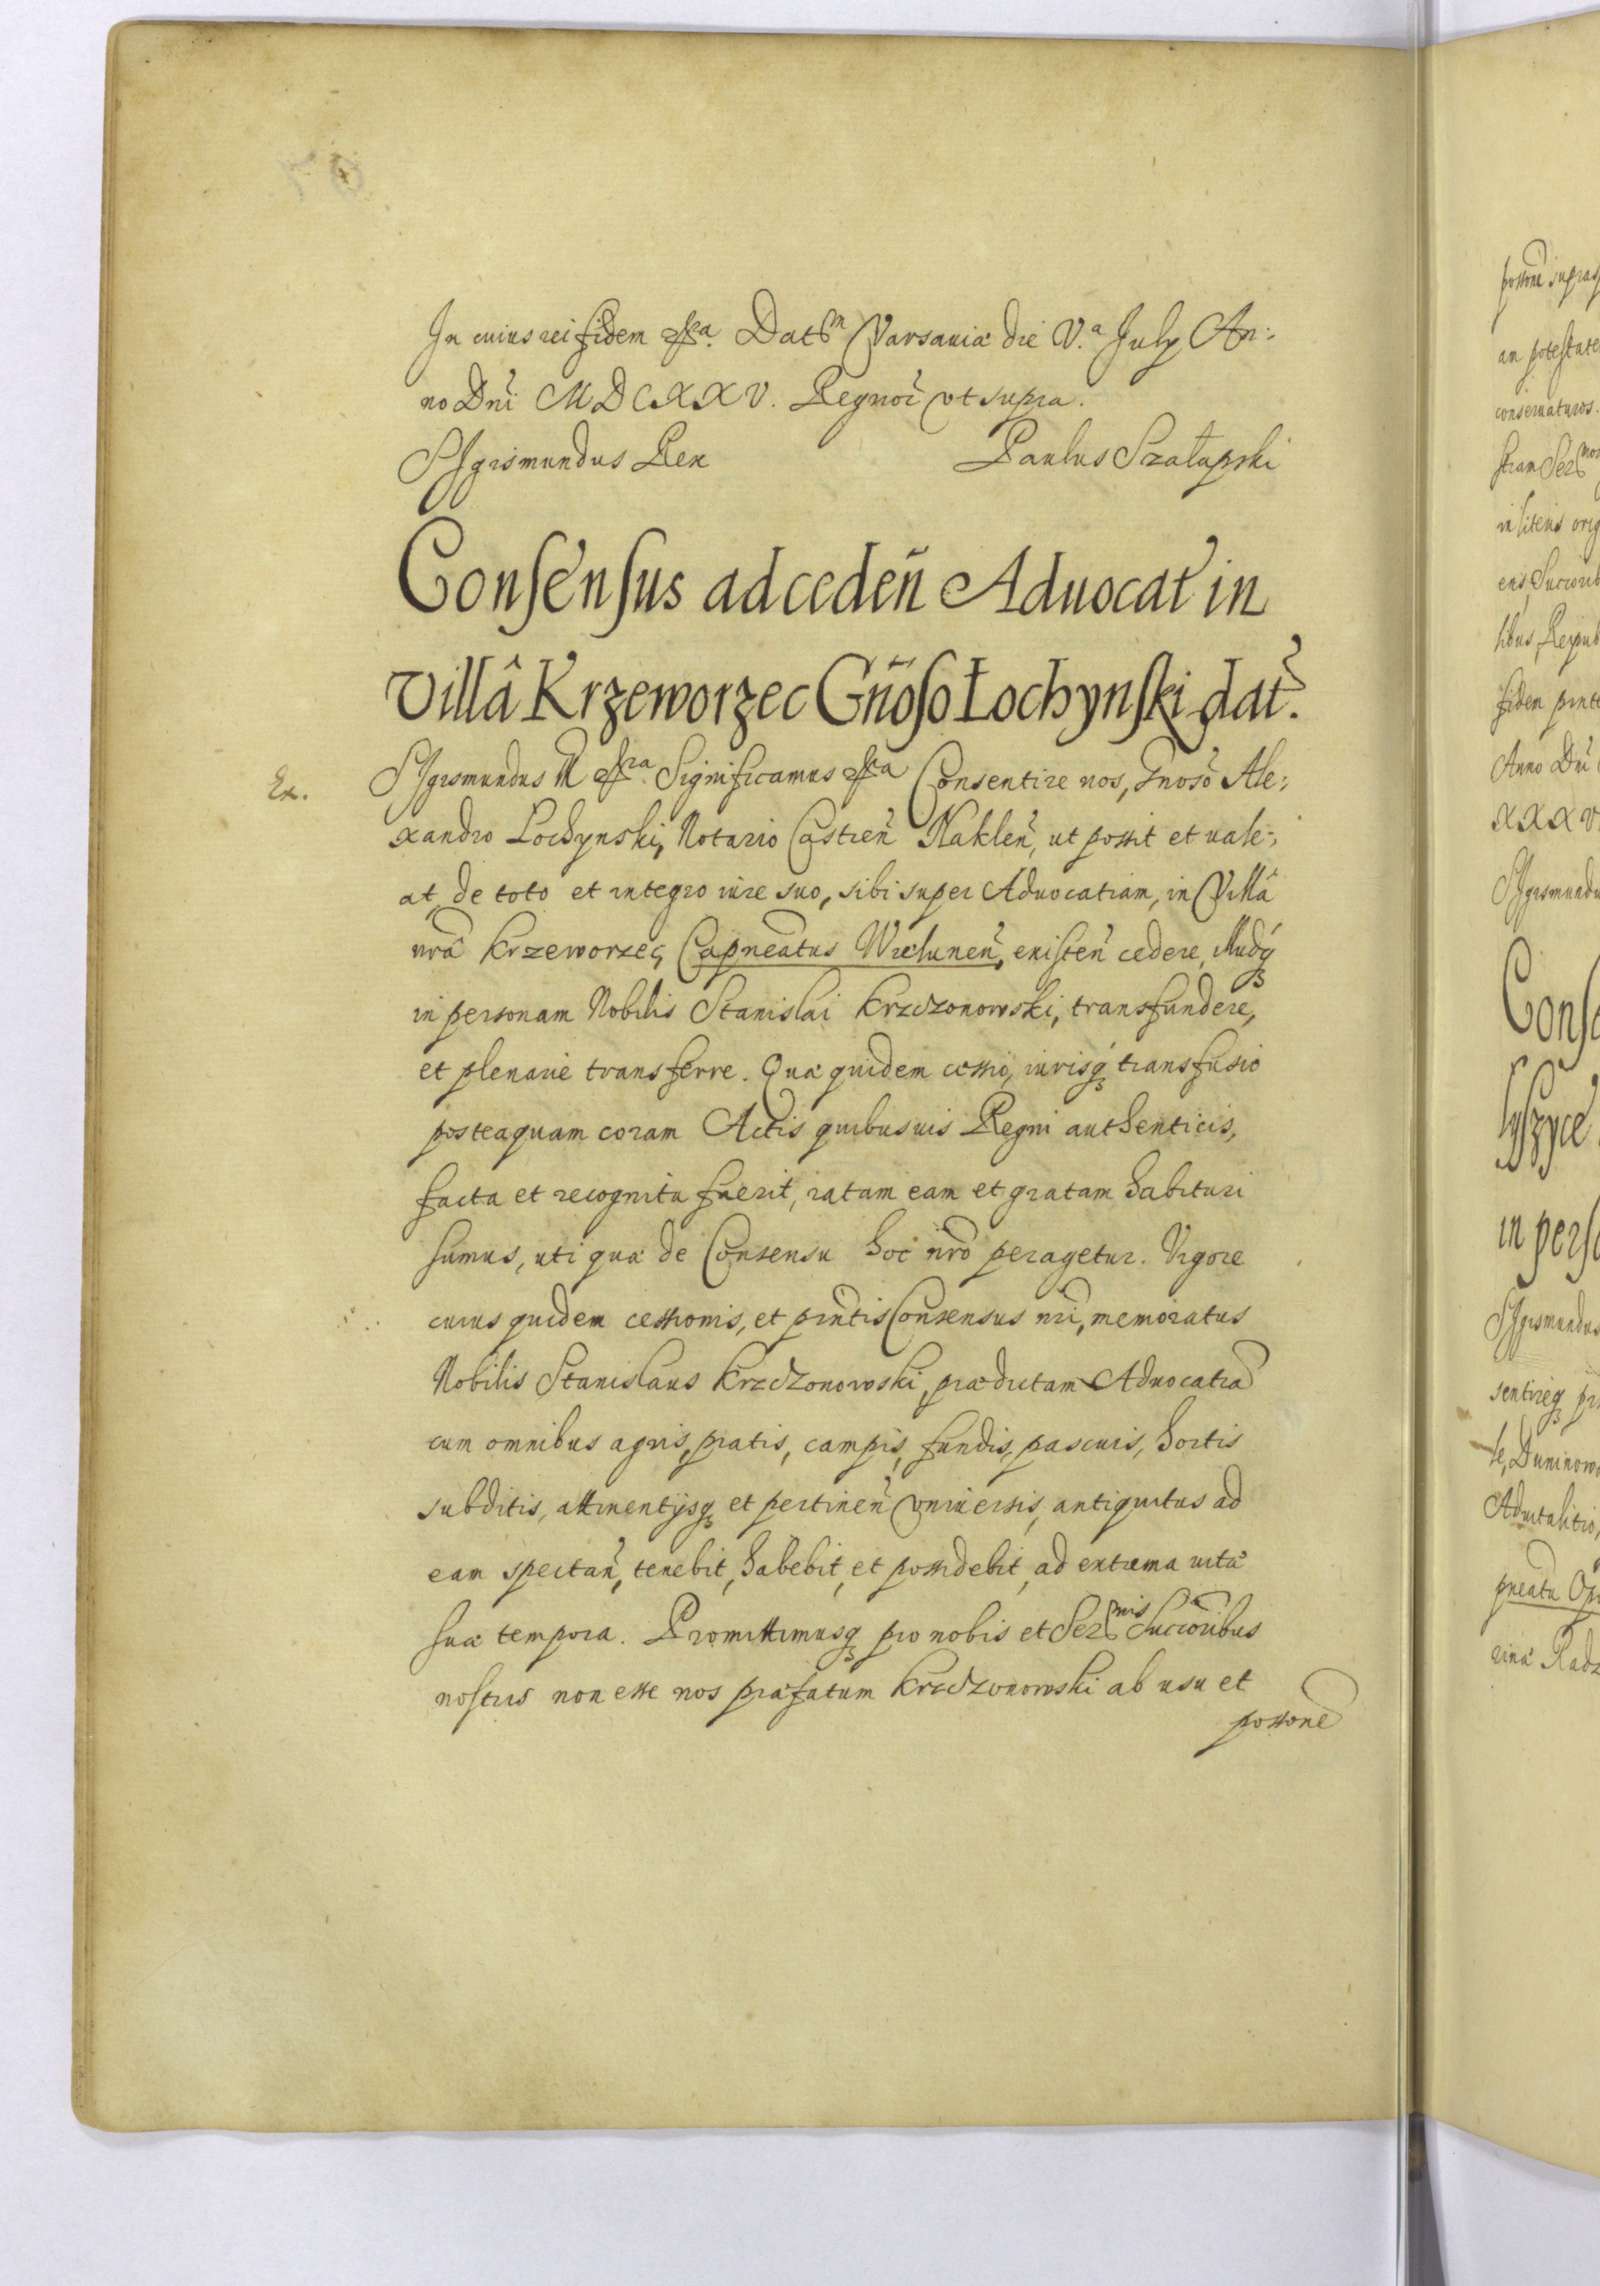 In cuius rei fidem etca. Datm Varsauiæ die V.a July An:
no Dni MDCXXV. Regnor ut supra.
SIgismundus Rex Paulus Szałapski
Consensus ad ceden Aduocat in
villâ Krzeworzec Gnoso Łochynski dat.
Ex.
SIgismundus III etca Significamus etca Consentire nos, Gnoso Ale:
xandro Lochynski, Notario Castren Naklen, ut possit et uale:
at, de toto et integro iure suo, sibi super Aduocatiam, in Villâ
nrâ Krzeworzec, Capneatus Wielunen, existen cedere, illudq
in personam Nobilis Stanislai Krzczonowski, transfundere,
et plenarie transferre. Quæ quidem cessio, iurisq transfusio
posteaquam coram Actis quibusuis Regni authenticis,
facta et recognita fuerit, ratam eam et gratam habituri
sumus, uti quæ de Consensu hoc nro peragetur. Vigore
cuius quidem cessionis, et prntis Consensus nri, memoratus
Nobilis Stanislaus Krzczonowski, prædictam Aduocatia
cum omnibus agris, pratis, campis, fundis, pascuis, hortis
subditis, attinentijsq et pertinen vniuersis, antiquitus ad
eam spectan, tenebit, habebit, et possidebit, ad extrema uitæ
suæ tempora. Promittimusq pro nobis et Sermis Sucroribus
nostris non esse nos præfatum Krzczonowski ab usu et
possone